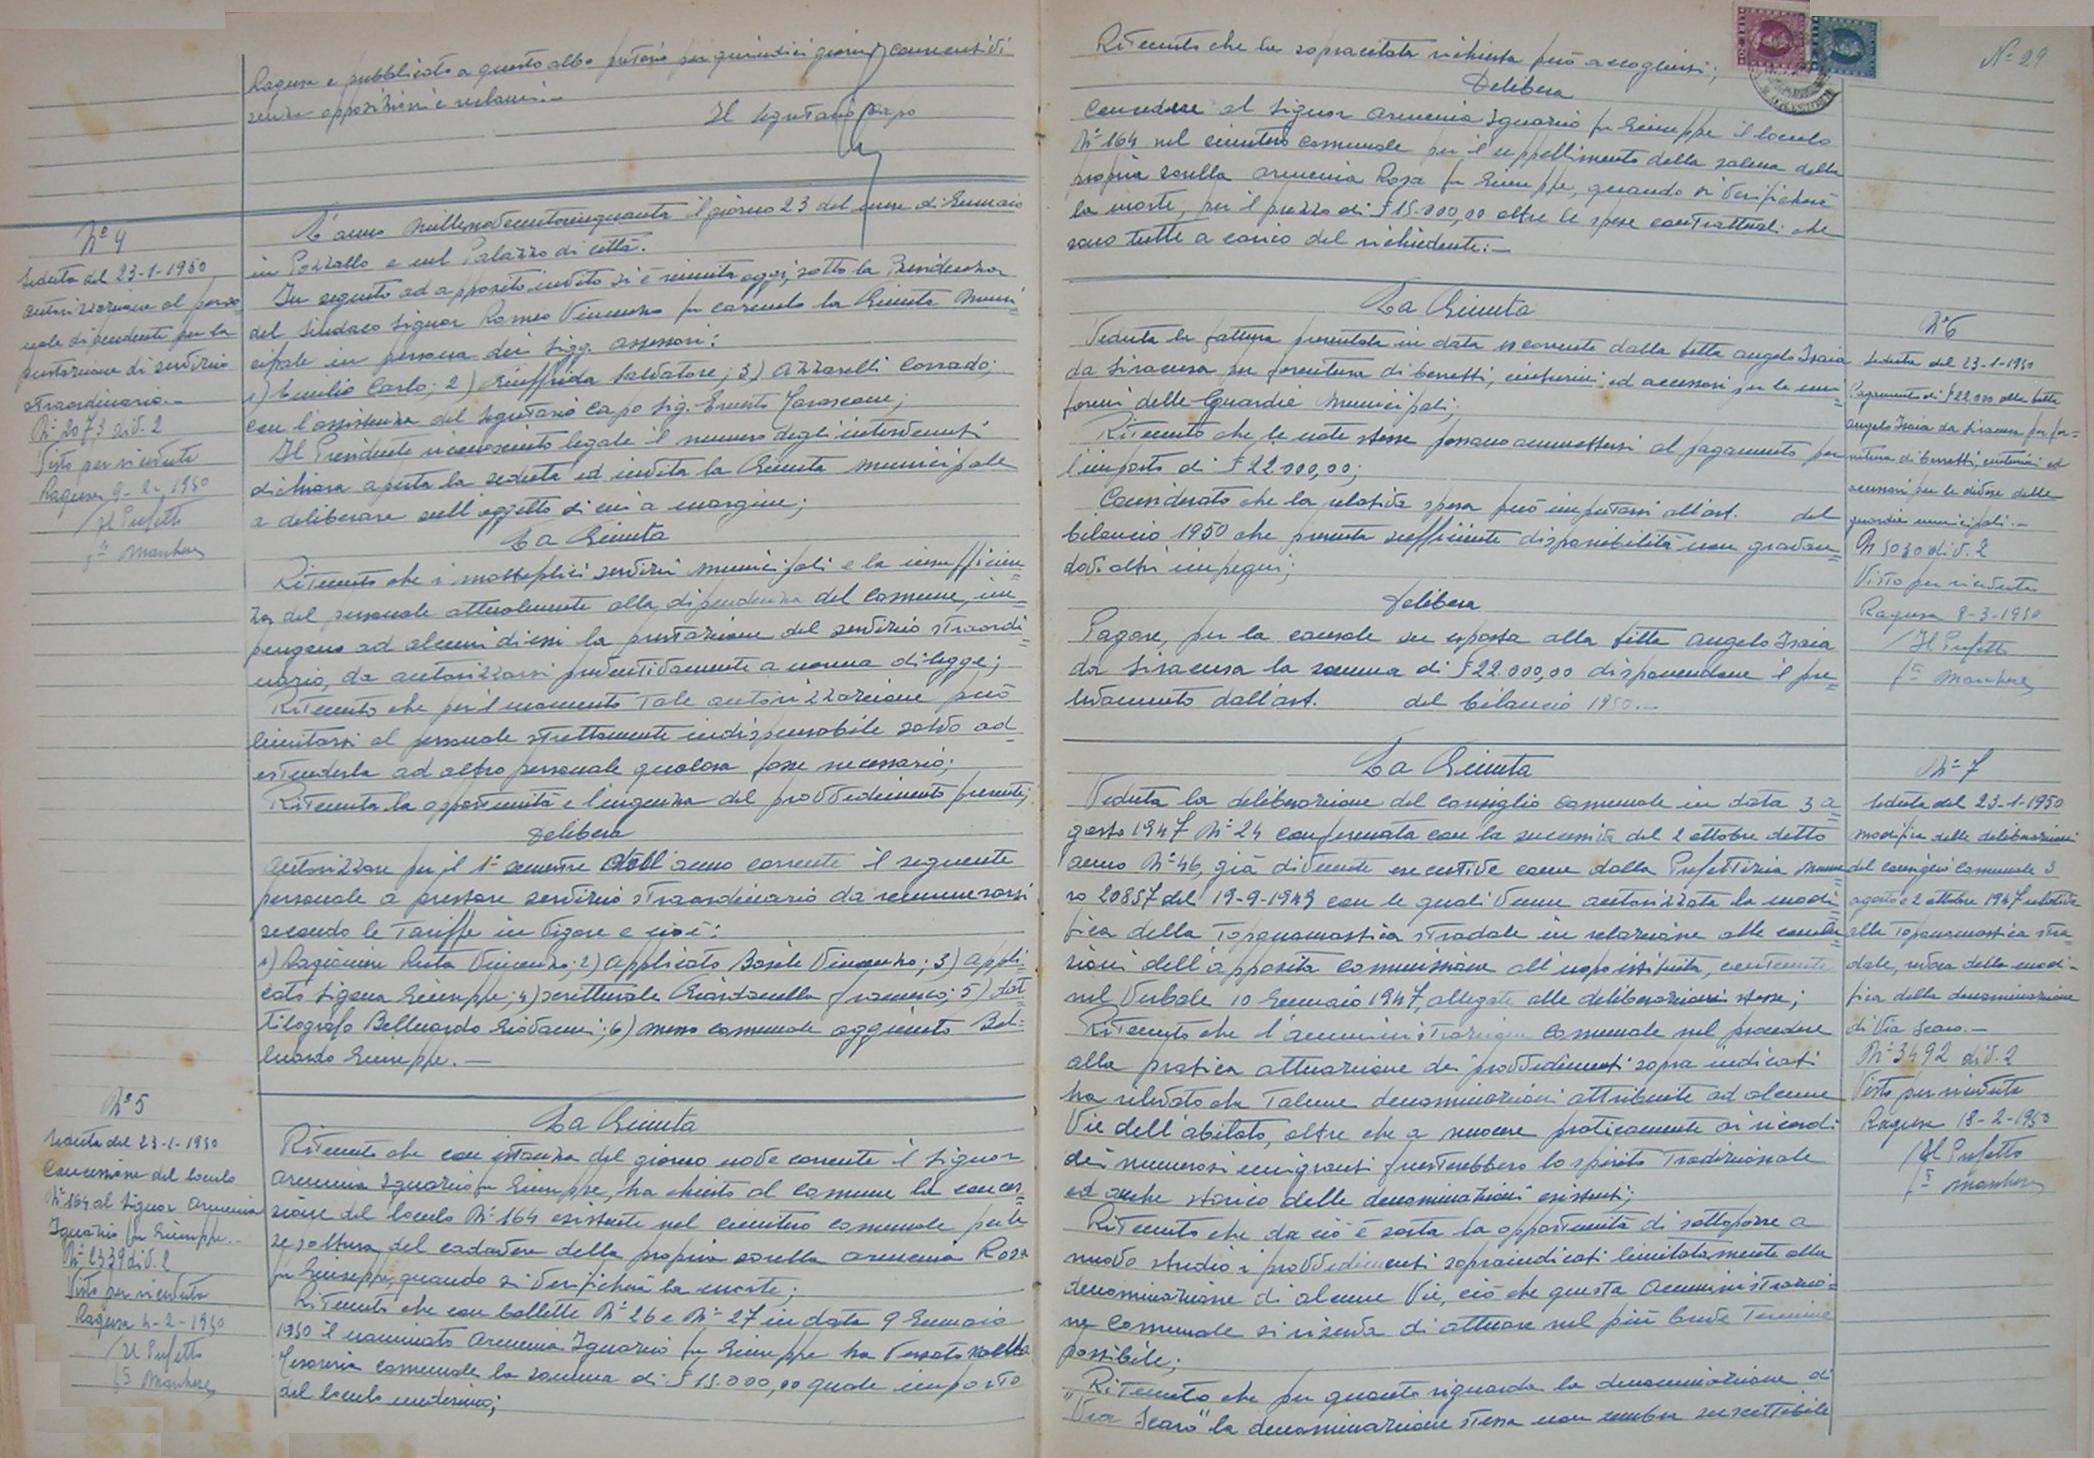 Ragusa e pubblicato a questo albo pretorio per quindici giorni consecutivi
senza opposizioni e reclami.—
Il Segretario Capo
L'anno millenovecentocinquanta il giorno 23 del mese di Gennaio
in Pozzallo e nel Palazzo di città.
In seguito ad apposito invito si è riunita oggi, sotto la Presidenza
del Sindaco Signor Romeo Vincenzo fu Carmelo la Giunta Muni-
cipale in persona dei Sigg. Assessori:
1) Emilio Carlo; 2) Giuffrida Salvatore; 3) Azzarelli Corrado;
con l'assistenza del Segretario Capo Sig. Ernesto
Il Presidente riconosciuto legale il numero degli intervenuti
dichiara aperta la seduta ed invita la Giunta Municipale
a deliberare sull'oggetto di cui a margine;
La Giunta
Ritenuto che i molteplici servizi municipali e la insufficien=
za del personale attualmente alla dipendenza del Comune, im=
pongono ad alcuni di essi la prestazione del servizio straordi=
nario, da autorizzarsi preventivamente a norma di legge;
Ritenuto che per il momento tale autorizzazione può
limitarsi al personale strettamente indispensabile salvo ad
estenderla ad altro personale qualora fosse necessario;
Ritenuta la opportunità e l'urgenza del provvedimento presente;
Delibera
Autorizzare per il 1° semestre dell'anno corrente il seguente
personale a prestare servizio straordinario da remunerarsi
secondo le tariffe in vigore e cioè:
1) Ragioniere Ruta Vincenzo; 2) Applicato Basile Vincenzo; 3) Appli-
cato Sigona Giuseppe; 4) scritturale Giardanella Francesco; 5) dat-
tilografo Belluardo Giovanni; 6) messo comunale aggiunto Bel-
luardo Giuseppe.—
La Giunta
Ritenuto che con istanza del giorno nove corrente il Signor
Armenia Ignazio fu Giuseppe, ha chiesto al Comune la conces=
sione del loculo N° 164 esistente nel cimitero comunale per la
sepoltura del cadavere della propria sorella Armenia Rosa
fu Giuseppe, quando si verificherà la morte;
Ritenuto che con bollette N° 26 e N° 27 in data 9 Gennaio
1950 il nominato Armenia Ignazio fu Giuseppe ha versato nella
Tesoreria comunale la somma di £ 15.000,00 quale importo
del loculo medesimo;
N° 4
Seduta del 23-1-1950
Autorizzazione al perso
nale dipendente per la
prestazione di servizio
straordinario.—
N° 2073 div. 2
Visto per ricevuta
Ragusa 9-2-1950
Il Prefetto
N° 5
Seduta del 23-1-1950
Concessione del loculo
N° 164 al Signor Armenia
Ignazio fu Giuseppe.—
N° 2339 div. 2
Visto per ricevuta
Ragusa 4-2-1950
Il Prefetto
N° 29
Ritenuto che la sopracitata richiesta può accogliersi;
Delibera
Concedere al Signor Armenia Ignazio fu Giuseppe il loculo
N° 164 nel cimitero comunale per il seppellimento della salma della
propria sorella Armenia Rosa fu Giuseppe, quando si verificherà
la morte, per il prezzo di £ 15.000,00 oltre le spese contrattuali che
sono tutte a carico del richiedente.—
La Giunta
Veduta la fattura presentata in data corrente dalla Ditta Angelo Isaia
da Siracusa per fornitura di berretti, cinturini ed accessori per le uni=
formi delle Guardie Municipali;
Ritenuto che le note stesse possano ammettersi al pagamento per
l'importo di £ 22.000,00;
Considerato che la relativa spesa può imputarsi all'art. del
bilancio 1950 che presenta sufficiente disponibilità non gravan=
dovi altri impegni;
Delibera
Pagare, per la causale su esposta alla Ditta Angelo Isaia
da Siracusa la somma di £ 22.000,00 disponendone il pre=
levamento dall'art. del bilancio 1950.—
La Giunta
Veduta la deliberazione del Consiglio Comunale in data 3 a
gosto 1947 N° 24 confermata con la successiva del 2 ottobre detto
anno N° 46, già divenute esecutive come dalla Prefettizia nume
ro 20857 del 19-9-1949 con le quali venne autorizzata la modi
fica della toponomastica stradale in relazione alle conclu
sioni dell'apposita commissione all'uopo istituita, contenute
nel verbale 10 Gennaio 1947, allegate alle deliberazioni stesse;
Ritenuto che l'amministrazione Comunale nel procedere
alla pratica attuazione dei provvedimenti sopra indicati
ha rilevato che talune denominazioni attribuite ad alcune
Vie dell'abitato, oltre che a nuocere praticamente ai ricordi
dei numerosi emigranti frustrerebbero lo spirito tradizionale
ed anche storico delle denominazioni esistenti;
Ritenuto che da ciò è sorta la opportunità di sottoporre a
nuovo studio i provvedimenti sopraindicati limitatamente alla
denominazione di alcune Vie, ciò che questa Amministrazio=
ne Comunale si riserva di attuare nel più breve termine
possibile;
Ritenuto che per quanto riguarda la denominazione di
"Via Scaro" la denominazione stessa non sembra suscettibile
N° 6
Seduta del 23-1-1950
Pagamento di £ 22.000 alla Ditta
Angelo Isaia da Siracusa per for=
nitura di berretti, cinturini ed
accessori per le divise delle
guardie municipali.—
N° 5030 div. 2
Visto per ricevuta
Ragusa 8-3-1950
Il Prefetto
N° 7
Seduta del 23-1-1950
Modifica delle deliberazioni
del Consiglio Comunale 3
agosto e 2 ottobre 1947 relative
alla toponomastica stra=
dale, revoca della modi=
fica della denominazione
di Via Scaro.—
N° 3492 div. 2
Visto per ricevuta
Ragusa 18-2-1950
Il Prefetto